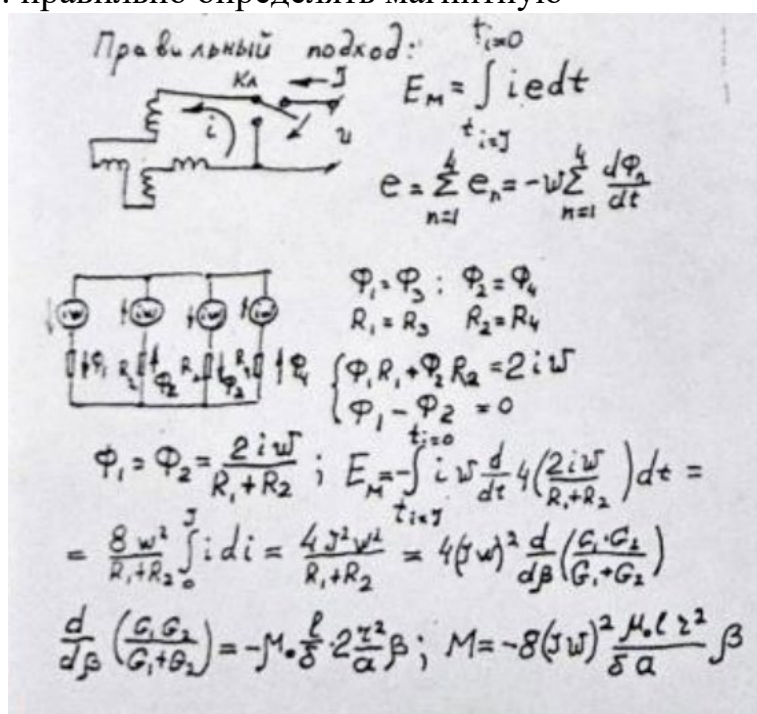 : правильно определять магнитную
Правильный подход:
Кл J i u
E_M = ∫_{t_{i=J}}^{t_{i=0}} i e dt
e = Σ_{n=1}^{4} e_n = -w Σ_{n=1}^{4} dΦ_n/dt
iw iw iw iw
Φ₁ = Φ₃ ; Φ₂ = Φ₄
R₁ = R₃ R₂ = R₄
{ Φ₁R₁ + Φ₂R₂ = 2iw
Φ₁ - Φ₂ = 0
Φ₁ = Φ₂ = 2iw/(R₁+R₂) ; E_M = -∫_{t_{i=J}}^{t_{i=0}} i w d/dt 4(2iw/(R₁+R₂)) dt =
= 8w²/(R₁+R₂) ∫_0^J i di = 4J²w²/(R₁+R₂) = 4(Jw)² d/dβ (G₁·G₂/(G₁+G₂))
d/dβ (G₁G₂/(G₁+G₂)) = -μ₀ l/δ · 2 r²/a β ; M = -8(Jw)² μ₀ l r²/(δ a) β